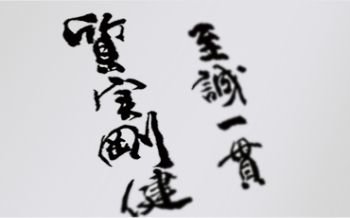 至誠一貫
質実剛健